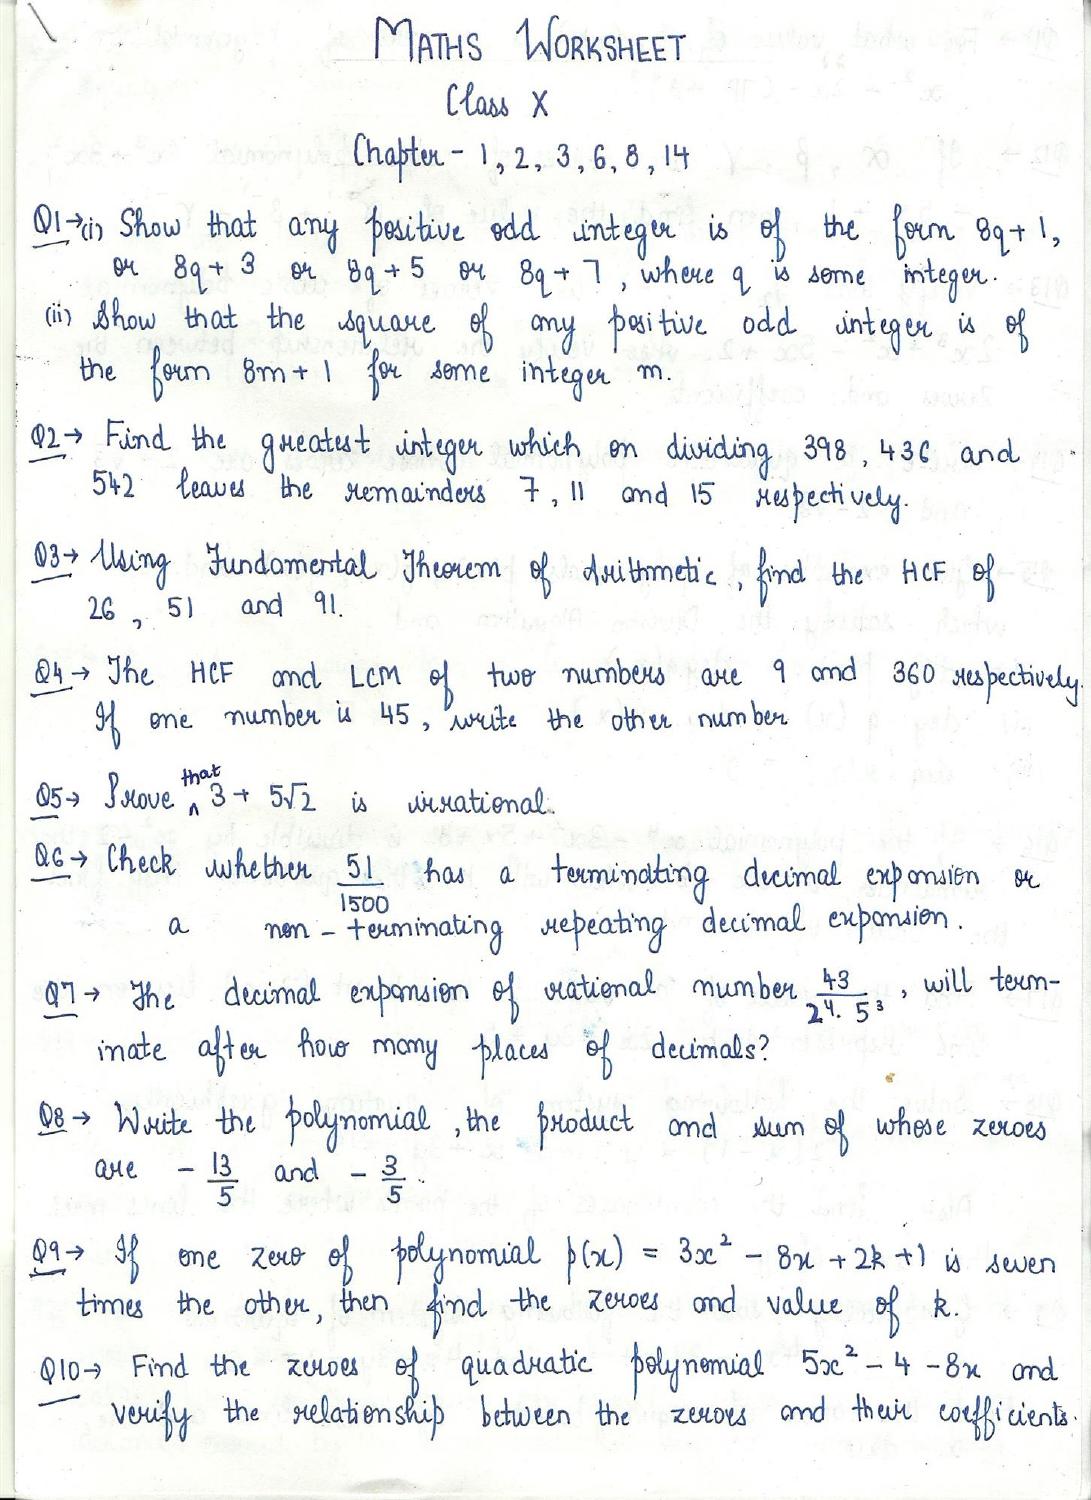 MATHS WORKSHEET
Class X
Chapter - 1, 2, 3, 6, 8, 14
Q1→(i) Show that any positive odd integer is of the form 8q+1,
or 8q+3 or 8q+5 or 8q+7, where q is some integer.
(ii) Show that the square of any positive odd integer is of
the form 8m+1 for some integer m.
Q2→ Find the greatest integer which on dividing 398, 436 and
542 leaves the remainders 7, 11 and 15 respectively.
Q3→ Using Fundamental Theorem of Arithmetic, find the HCF of
26, 51 and 91.
Q4→ The HCF and LCM of two numbers are 9 and 360 respectively.
If one number is 45, write the other number
Q5→ Prove that 3+5√2 is irrational.
Q6→ Check whether 51/1500 has a terminating decimal expansion or
a non-terminating repeating decimal expansion.
Q7→ The decimal expansion of rational number 43/2⁴.5³, will term-
inate after how many places of decimals?
Q8→ Write the polynomial, the product and sum of whose zeroes
are -13/5 and -3/5.
Q9→ If one zero of polynomial p(x) = 3x² - 8x + 2k + 1 is seven
times the other, then find the zeroes and value of k.
Q10→ Find the zeroes of quadratic polynomial 5x² - 4 - 8x and
verify the relationship between the zeroes and their coefficients.